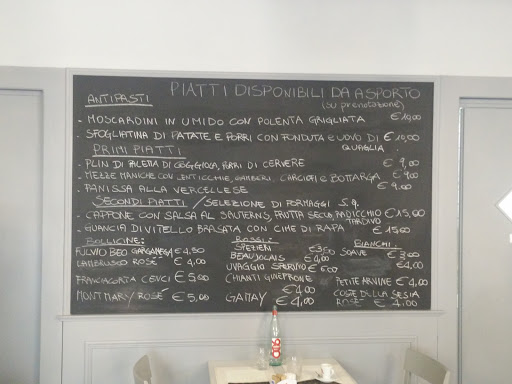 PIATTI DISPONIBILI DA ASPORTO
(su prenotazione)
ANTIPASTI
- MOSCARDINI IN UMIDO CON POLENTA GRIGLIATA €10,00
- SFOGLIATINA DI PATATE E PORRI CON FONDUTA E UOVO DI QUAGLIA €10,00
PRIMI PIATTI
- PLIN DI PALETTA DI COGGIOLA, PORRI DI CERVERE € 9,00
- MEZZE MANICHE CON LENTICCHIE, GAMBERI CARCIOFI E BOTTARGA € 9,00
- PANISSA ALLA VERCELLESE € 9,00
SECONDI PIATTI / SELEZIONE DI FORMAGGI S.q.
- CAPPONE CON SALSA AL SAUTERNS, FRUTTA SECCA, RADICCHIO TARDIVO €15,00
- GUANCIA DI VITELLO BRASATA CON CIME DI RAPA €15,00
BOLLICINE:
FULVIO BEO GARGANEGA €4,50
LAMBRUSCO ROSÉ €4,00
FRANCIACORTA CENCI €5,00
MONTMARY ROSÉ €5,00
ROSSI:
SPEZIERI €3,50
BEAUJOLAIS €4,00
UVAGGIO SPERINO €5,00
CHIANTI GINEPRONE €4,00
GAMAY €4,00
BIANCHI:
SOAVE €3,00
€4,00
PETITE ARVINE €4,00
COSTE DELLA SESIA ROSÉ €4,00